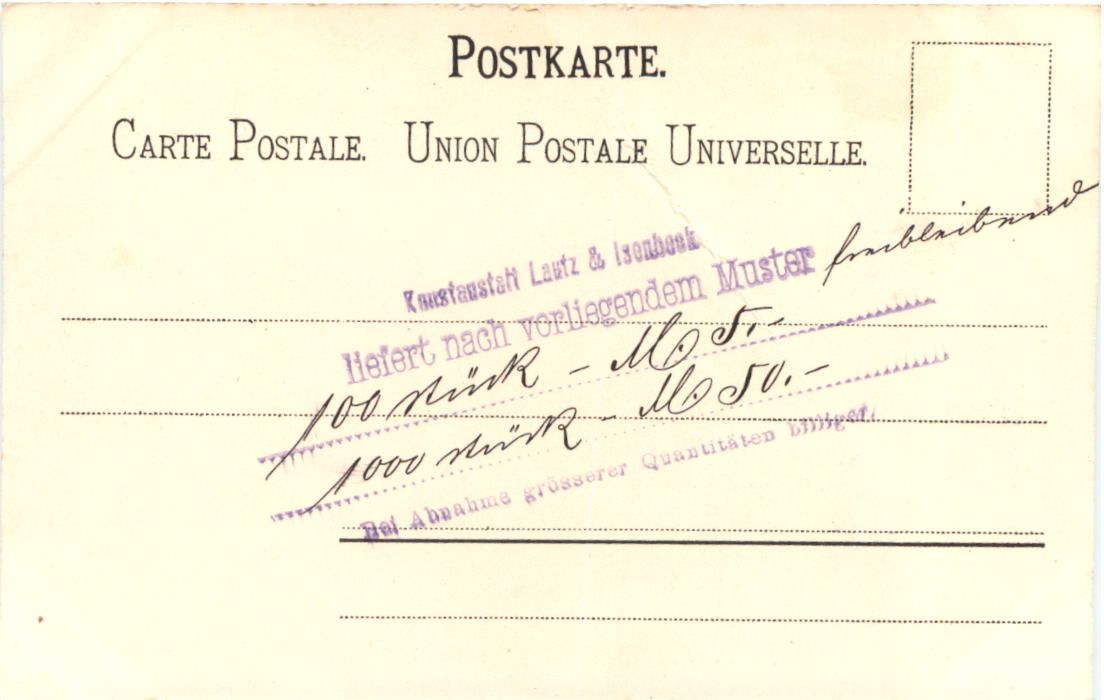 POSTKARTE.
CARTE POSTALE. UNION POSTALE UNIVERSELLE.
Kunstanstalt Lautz & Isenbeck
liefert nach vorliegendem Muster freibleibend
100 Stück - M. 5.-
1000 Stück - M. 50.-
Bei Abnahme grösserer Quantitäten billiger.